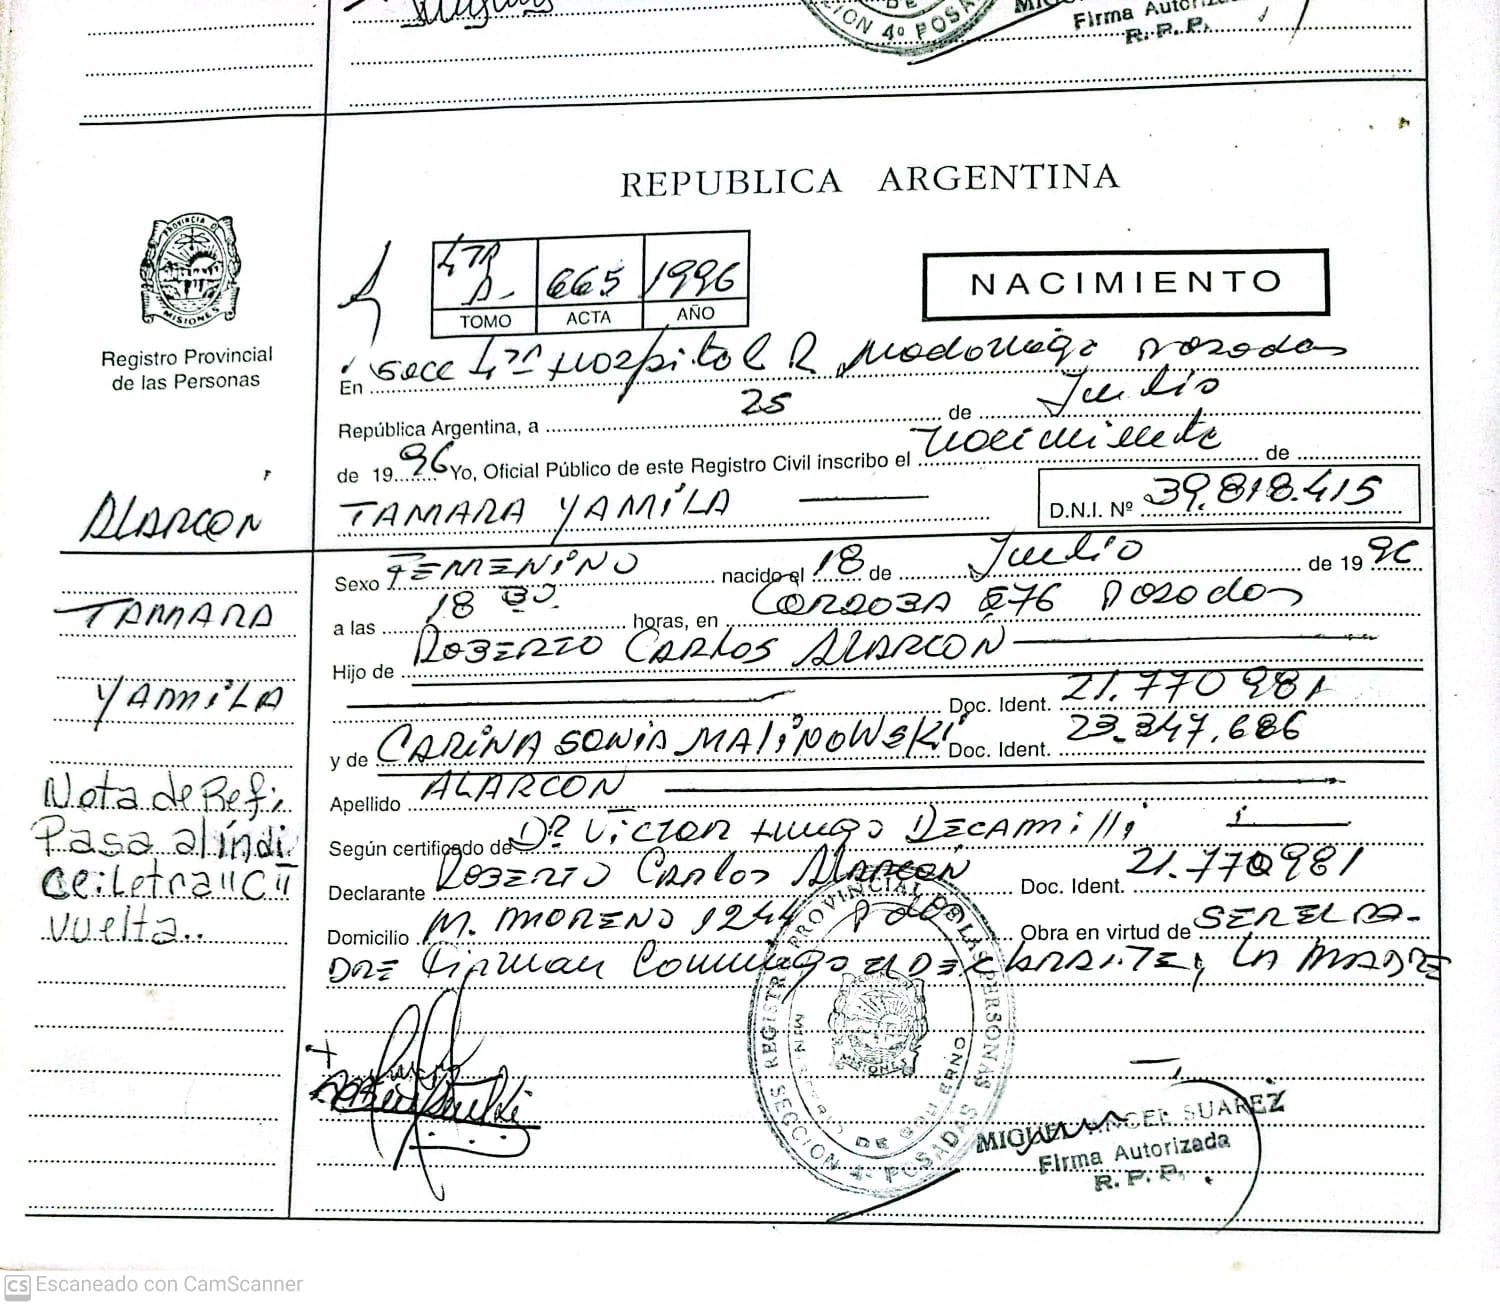 CION 4º POSA
Firma Autoriz
R.P.P.
REPUBLICA ARGENTINA
PROVINCIA D
MISIONES
Registro Provincial
de las Personas
4ta
A-
665
1996
TOMO
ACTA
AÑO
NACIMIENTO
En Secc 4ta Hospital R Madariaga Posadas
República Argentina, a 25 de Julio
de 1996 Yo, Oficial Público de este Registro Civil inscribo el Nacimiento de
ALARCON
TAMARA YAMILA
D.N.I. Nº 39.818.415
TAMARA
YAMILA
Sexo FEMENINO nacido el 18 de Julio de 1996
a las 18 30 horas, en CORDOBA 876 Posadas
Hijo de ROBERTO CARLOS ALARCON
Doc. Ident. 21.770 981
y de CARINA SONIA MALINOWSKI Doc. Ident. 23.347.686
Apellido ALARCON
Nota de Ref:
Pasa al índi
ce: Letra "C"
vuelta..
Según certificado de Dr. Víctor Hugo DECAMILLI
Declarante ROBERTO CARLOS ALARCON Doc. Ident. 21.770981
Domicilio M. MORENO 1244 Pdas Obra en virtud de SER EL PA-
DRE Firman Conmigo el DECLARANTE, LA MADRE
REGISTRO PROVINCIAL DE LAS PERSONAS
MINISTERIO DE GOBIERNO
MISIONES
SECCION 4º POSADAS
MIGUEL ANGEL SUAREZ
Firma Autorizada
R.P.P.
CS Escaneado con CamScanner